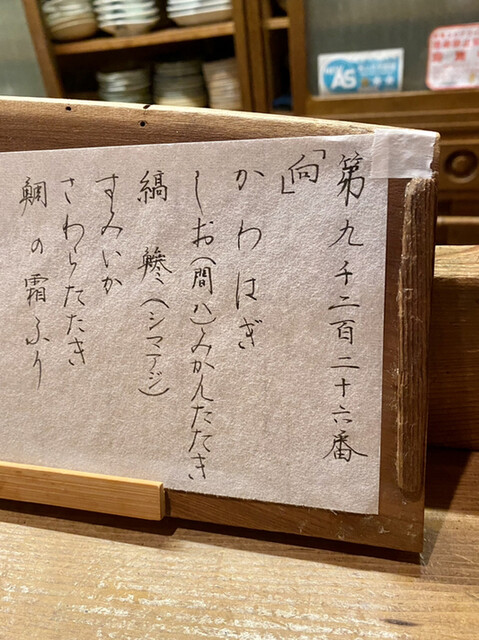 第九千二百二十六番
「向」
かわはぎ
しお(間八)みかんたたき
縞鯵(シマアジ)
すみいか
さわらたたき
鯛の霜ふり
AS